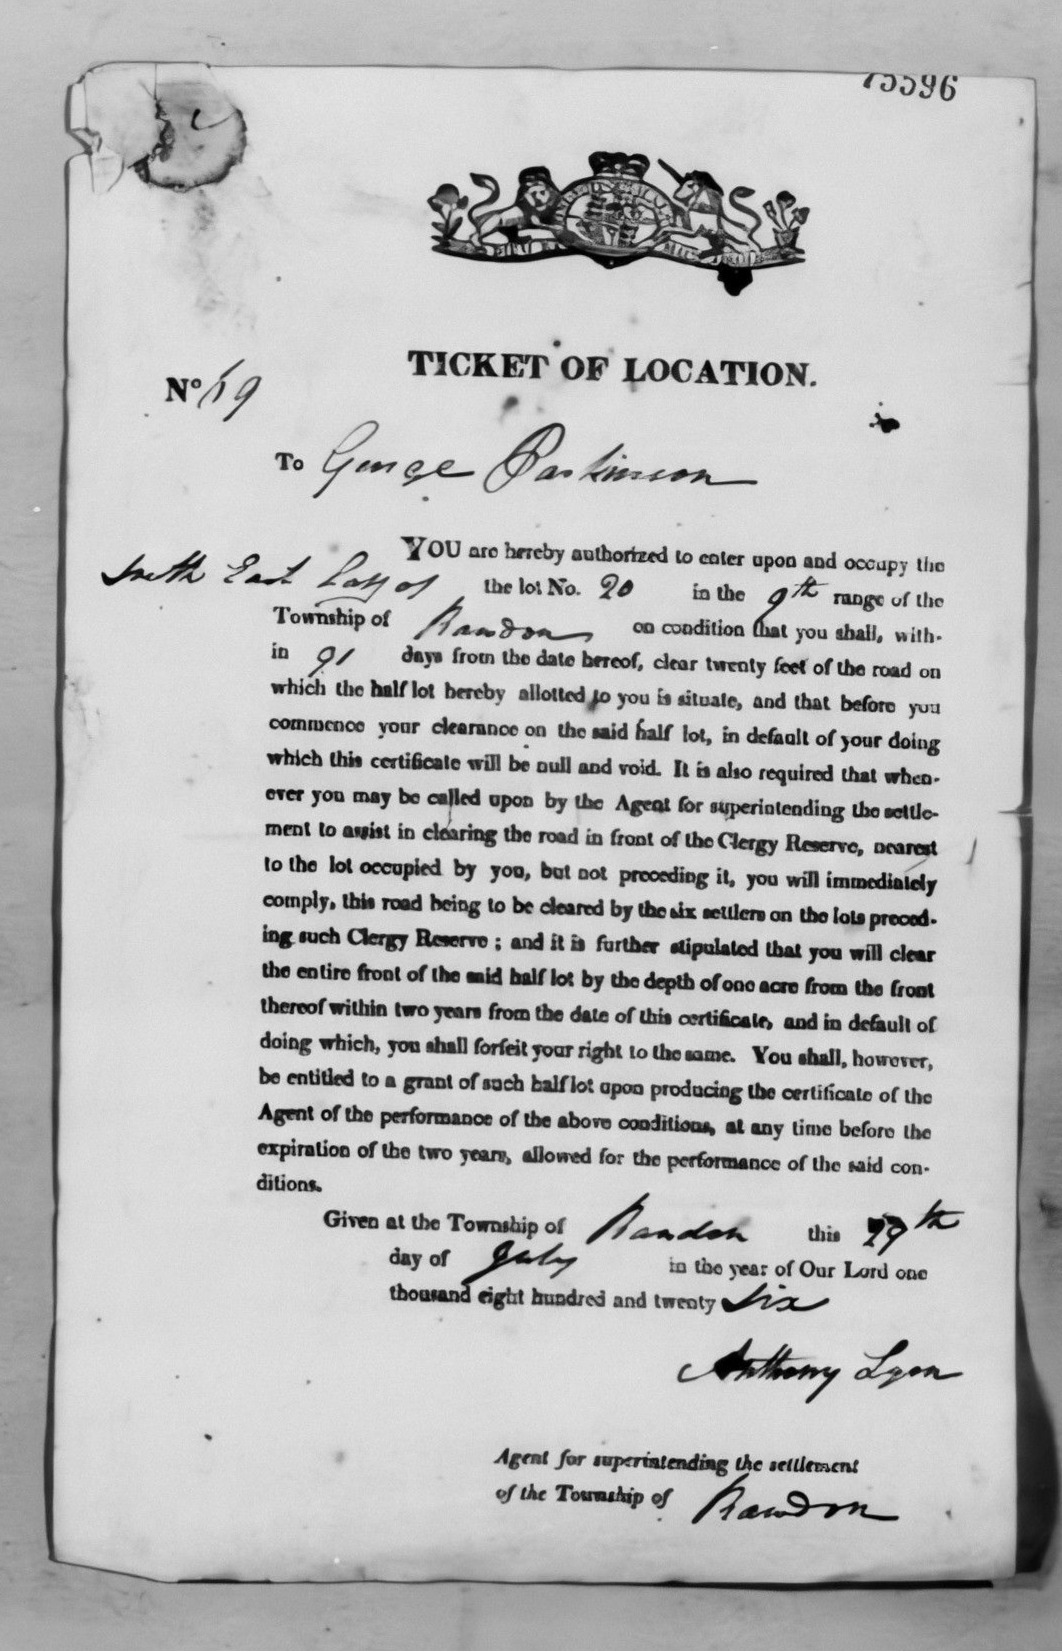 75596
TICKET OF LOCATION.
No 19
To George Parkinson
YOU are hereby authorized to enter upon and occupy the
South East half of the lot No. 20 in the 9th range of the
Township of Rawdon on condition that you shall, with-
in 91 days from the date hereof, clear twenty feet of the road on
which the half lot hereby allotted to you is situate, and that before you
commence your clearance on the said half lot, in default of your doing
which this certificate will be null and void. It is also required that when-
ever you may be called upon by the Agent for superintending the settle-
ment to assist in clearing the road in front of the Clergy Reserve, nearest
to the lot occupied by you, but not preceding it, you will immediately
comply, this road being to be cleared by the six settlers on the lots preced-
ing such Clergy Reserve ; and it is further stipulated that you will clear
the entire front of the said half lot by the depth of one acre from the front
thereof within two years from the date of this certificate, and in default of
doing which, you shall forfeit your right to the same. You shall, however,
be entitled to a grant of such half lot upon producing the certificate of the
Agent of the performance of the above conditions, at any time before the
expiration of the two years, allowed for the performance of the said con-
ditions.
Given at the Township of Rawdon this 29th
day of July in the year of Our Lord one
thousand eight hundred and twenty Six
Anthony Lyon
Agent for superintending the settlement
of the Township of Rawdon